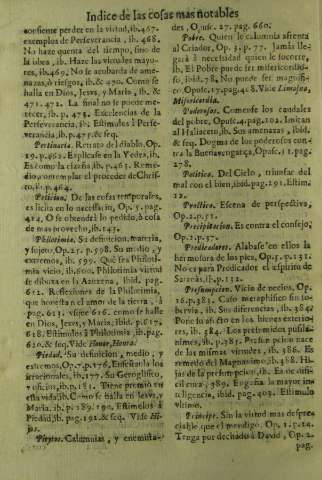 Indice de las cosas mas notables
consiente perder en la virtud, ib. 467.
exemplos de Perseverancia, ib. 468.
No haze quenta del tiempo, sino de
la obra, ib. Haze las virtudes mayores,
ib. 469. No se acobarda de amenazas,
ò riesgos, ib. & 470. Como se
halla en Dios, Jesvs, y Maria, ib. &
471. 472. La final no se puede merecer,
ib. p. 473. Excelencias de la
Perseverancia, ib. Estimulos à Perseverancia,
ib. p. 475. & seq.
Pertinacia. Retrato del diablo. Op.
19. p. 462. Explicase en la Yedra, ib.
Es como la cizaña, ib. p. 463. Remedio,
contemplar el proceder de Christo.
ib. p. 464.
Peticion. De las cosas temporales,
es licita en lo necessario, Op. 5. pag.
414. O se obtendrà lo pedido, ò cosa de
mas provecho, ib. 143.
Philotimia. Su definicion, materia,
y sujeto, Op. 25. p. 598. Su medio, y
extremos, ib. 599. Què sea Philotimia
vicio, ib. 600. Philotimia virtud
se dibuxa en la Azerena, ibid. pag.
612. Reflexiones de la Philotimia,
que honesta en el amor de la tierra, à
pag. 613. vsque 616. como se halle
en Dios, Jesvs, y Maria, ibid. p. 617.
618. Estimulos à Philotimia, ib. pag.
620. & seq. Vide Honor, Honra.
Piedad. Su definicion, medio, y
extremos, Op. 7. p. 176. Enseñasela los
irracionales, ib. 177. Su Geroglifico,
y oficios, ib. p. 181. Tiene premio en
esta vida, ib. Como se halla en Jesvs, y
Maria, ib. p. 189. 190. Estimulos à
Piedad, ib. pag. 192. & seq. Vide Hijos.
Pleytos. Calumnias, y enemistades,
Opusc. 27. pag. 660.
Pobre. Quien le calumnia afrenta
al Criador, Op. 3. p. 77. Jamàs llegará
à necesidad quien le socorre,
ib. El Pobre puede ser misericordioso,
ibid. 78. No puede ser magnifico,
Opusc. 17. pag. 418. Vide Limosna,
Misericordia.
Poderoso. Comense los caudales
del pobre, Opusc. 4. pag. 102. Imitan
al Haliaceto, ib. Sus amenazas, ibid.
& seq. Dogma de los poderosos contra
la Buenaventurança, Opusc. 11. pag.
278.
Politica. Del Cielo, triunfar del
mal con el bien, ibid. pag. 291. Estim.
12.
Politico. Escena de perspectiva,
Op. 2. p. 51.
Precipitacion. Es contra el consejo,
Op. 2. p. 57.
Predicadores. Alabase en ellos la
hermosura de los pies, Op. 5. p. 131.
No es para Predicador el espiritu de
Satanàs, ib. p. 132.
Presumcion. Vicio de necios, Op.
16. p. 383. Caso metaphisico sin soberbia,
ib. Sus diferencias, ib. 384.
Pone la afrenta en los bienes exteriores,
ib. 384. Los presumidos pusilanimes,
ib. p. 385. Presumpcion nace
de las mismas virtudes, ib. 386. Es
remedo del Magnanimo, ib. 388. Hijas
de la presumpcion, ib. Es de dificil
cura, 389. Engaña la mayor inteligencia,
ibid. pag. 403. Estimulo
vltimo.
Principe. Sin la virtud mas despreciable
que el mendigo. Op. 1. p. 14.
Tenga por dechado à David, Op. 2.
pag.